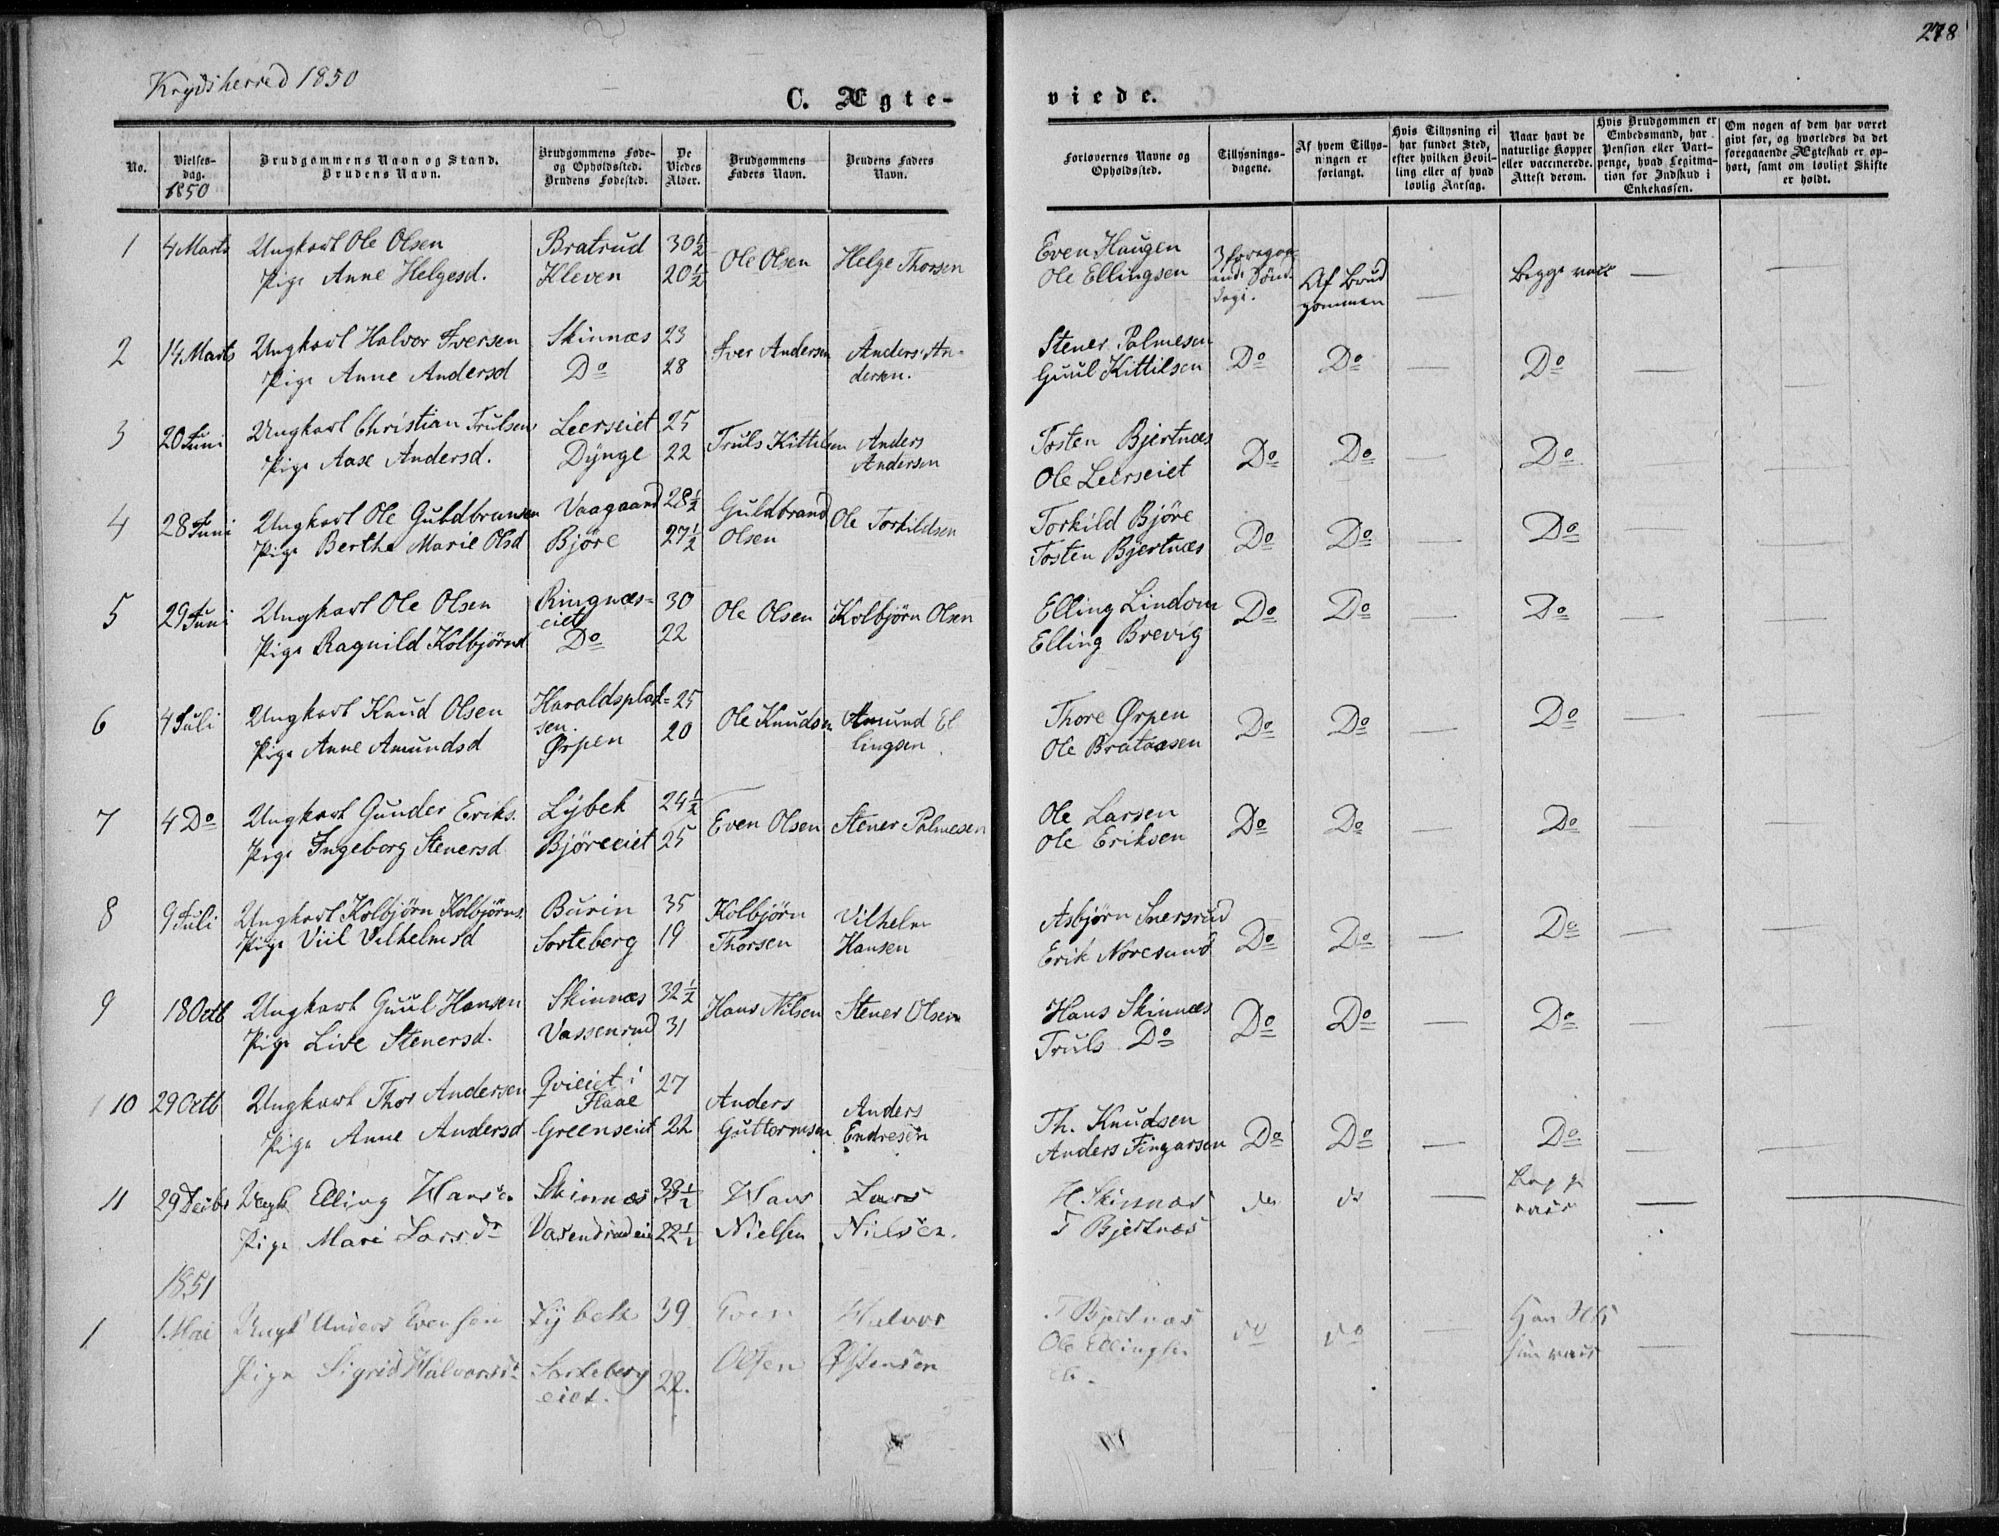 Krydsherred 1850
278
C. Ægte-
viede.
No.
Vielses-
dag.
1850
Brudgommens Navn og Stand.
Brudens Navn.
Brudgommens Føde-
og Opholdssted.
Brudens Fødested.
De
Viedes
Alder.
Brudgommens
Faders Navn.
Brudens Faders
Navn.
Forlovernes Navne og
Opholdssted.
Tillysnings-
dagene.
Af hvem Tillys-
ningen er
forlangt.
Hvis Tillysning ei
har fundet Sted,
efter hvilken Bevil-
ling eller af hvad
lovlig Aarsag.
Naar havt de
naturlige Kopper
eller vaccinerede.
Attest derom.
Hvis Brudgommen er
Embedsmand, har
Pension eller Vart-
penge, hvad Legitima-
tion for Indskud i
Enkekassen.
Om nogen af dem har været
gift før, og hvorledes da det
foregaaende Ægteskab er op-
hørt, samt om lovligt Skifte
er holdt.
1 4 Marts Ungkarl Ole Olsen Bratrud 30½ Ole Olsen Helge Thorsen Even Haugen 3 foregaa-
Pige Anne Helgesd. Kleven 20½ Ole Ellingsen ende Søn-
dage. Af Brud
gommen — Begge vacc — —
2 14 Marts Ungkarl Halvor Iversen Skinnæs 23 Iver Andersen Anders An- Stener Palmesen
Pige Anne Andersd Do 28 dersen. Guul Kittilsen Do Do — Do — —
3 20 Juni Ungkarl Christian Trulsen Leerseiet 25 Truls Kittilsen Anders Tosten Bjertnæs
Pige Aase Andersd. Dynge 22 Andersen Ole Leerseiet Do Do — Do — —
4 28 Juni Ungkarl Ole Guldbransen Vaagaard 28½ Guldbrand Ole Torkildsen Torkild Björe
Pige Berthe Marie Olsd Björe 27½ Olsen Tosten Bjertnæs Do Do — Do — —
5 29 Juni Ungkarl Ole Olsen Ringnæs- 30 Ole Olsen Kolbjörn Olsen Elling Lindom Do Do — Do — —
eiet
Pige Ragnild Kolbjörnsd Do 22 Elling Brevig
6 4 Juli Ungkarl Knud Olsen Haraldsplad- 25 Ole Knudsen Amund El Thore Ørpen
sen.
Pige Anne Amundsd Ørpen 20 lingsen Ole Brataasen Do Do — Do — —
7 4 Do Ungkarl Gunder Eriks. Lybek 24½ Even Olsen Stener Palmesen Ole Larsen
Pige Ingeborg Stenersd Björeeiet 25 Ole Eriksen Do Do — Do — —
8 9 Juli Ungkarl Kolbjörn Kolbjörns. Burin 35 Kolbjörn Vilhelm Asbjörn Snersrud
Pige Viil Vilhelmsd Sorteberg 19 Thorsen Hansen Erik Noresund Do Do — Do — —
9 18 Octb Ungkarl Guul Hansen Skinnæs 32½ Hans Nilsen Stener Olsen Hans Skinnæs
Pige Live Stenersd. Vassenrud 31 Truls Do Do Do — Do — —
10 29 Octb Ungkarl Thor Andersen Qvieiet i 27 Anders Anders Th. Knudsen
Flaae
Pige Anne Andersd Greenseiet 22 Guttormsen Endresen Anders Fingarsen Do Do — Do — —
11 29 Decbr Ungk Elling Hansen Skinnæs 33½ Hans Lars H. Skinnæs do do — Begge
vacc — —
Pige Mari Larsdr Vasendrudeie 22½ Nielsen Nielsen. T Bjertnæs
1851
1 1 Mai Ungk Anders Evensen Lybek 39 Even Halvor T Bjertnæs do do — Han
Pige Sigrid Halvorsdr Sorteberg 22. Olsen Østensen Ole Ellingsen hun vacc — —
eiet.